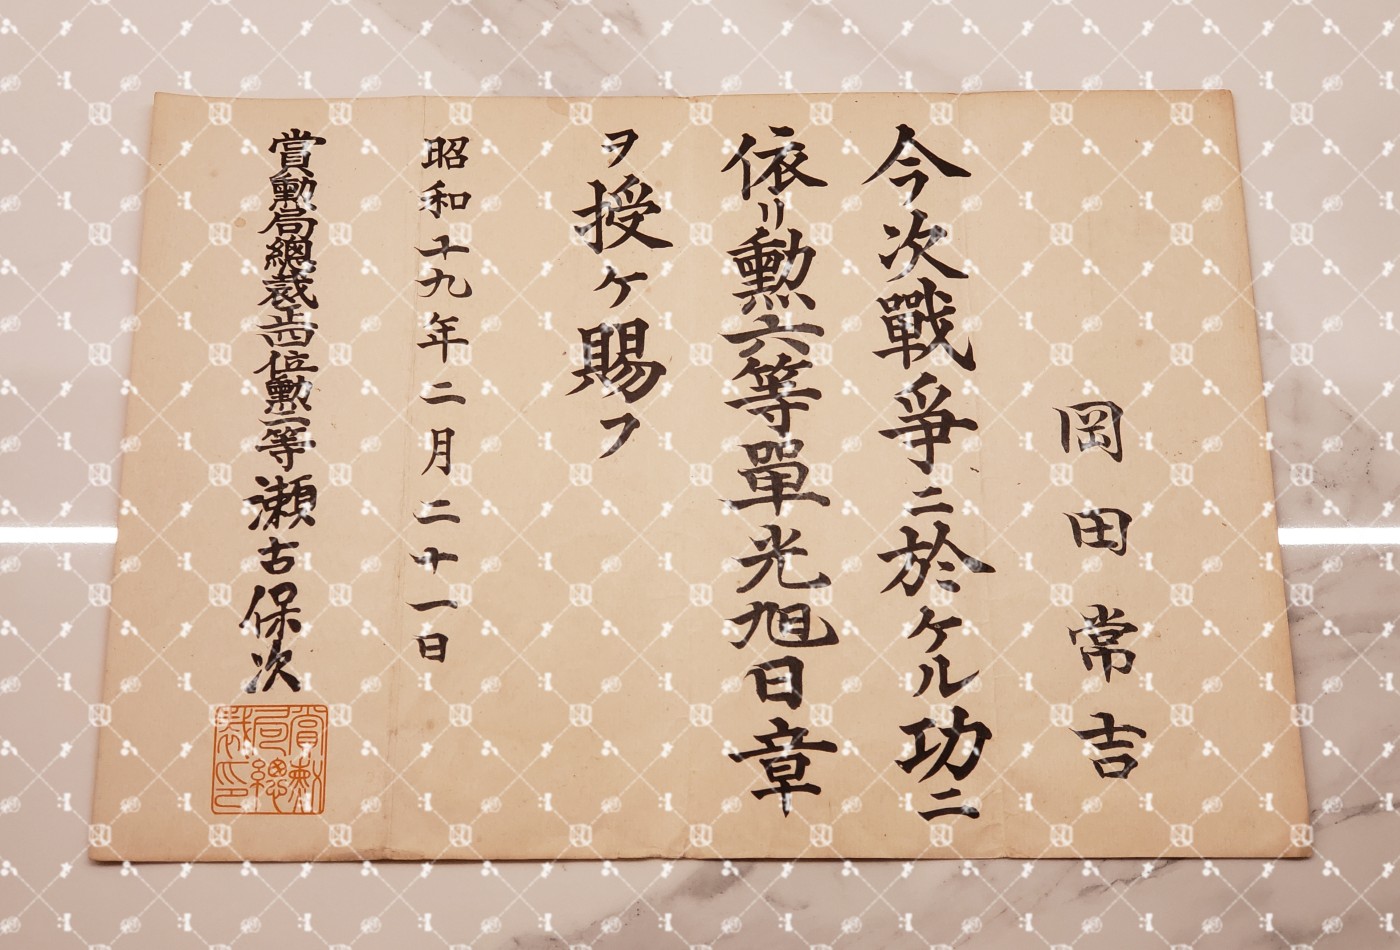 岡田常吉
今次戰爭ニ於ケル功ニ
依リ勳六等單光旭日章
ヲ授ケ賜フ
昭和十九年二月二十一日
賞勳局總裁正四位勳二等瀬古保次
賞勳
局總
裁印